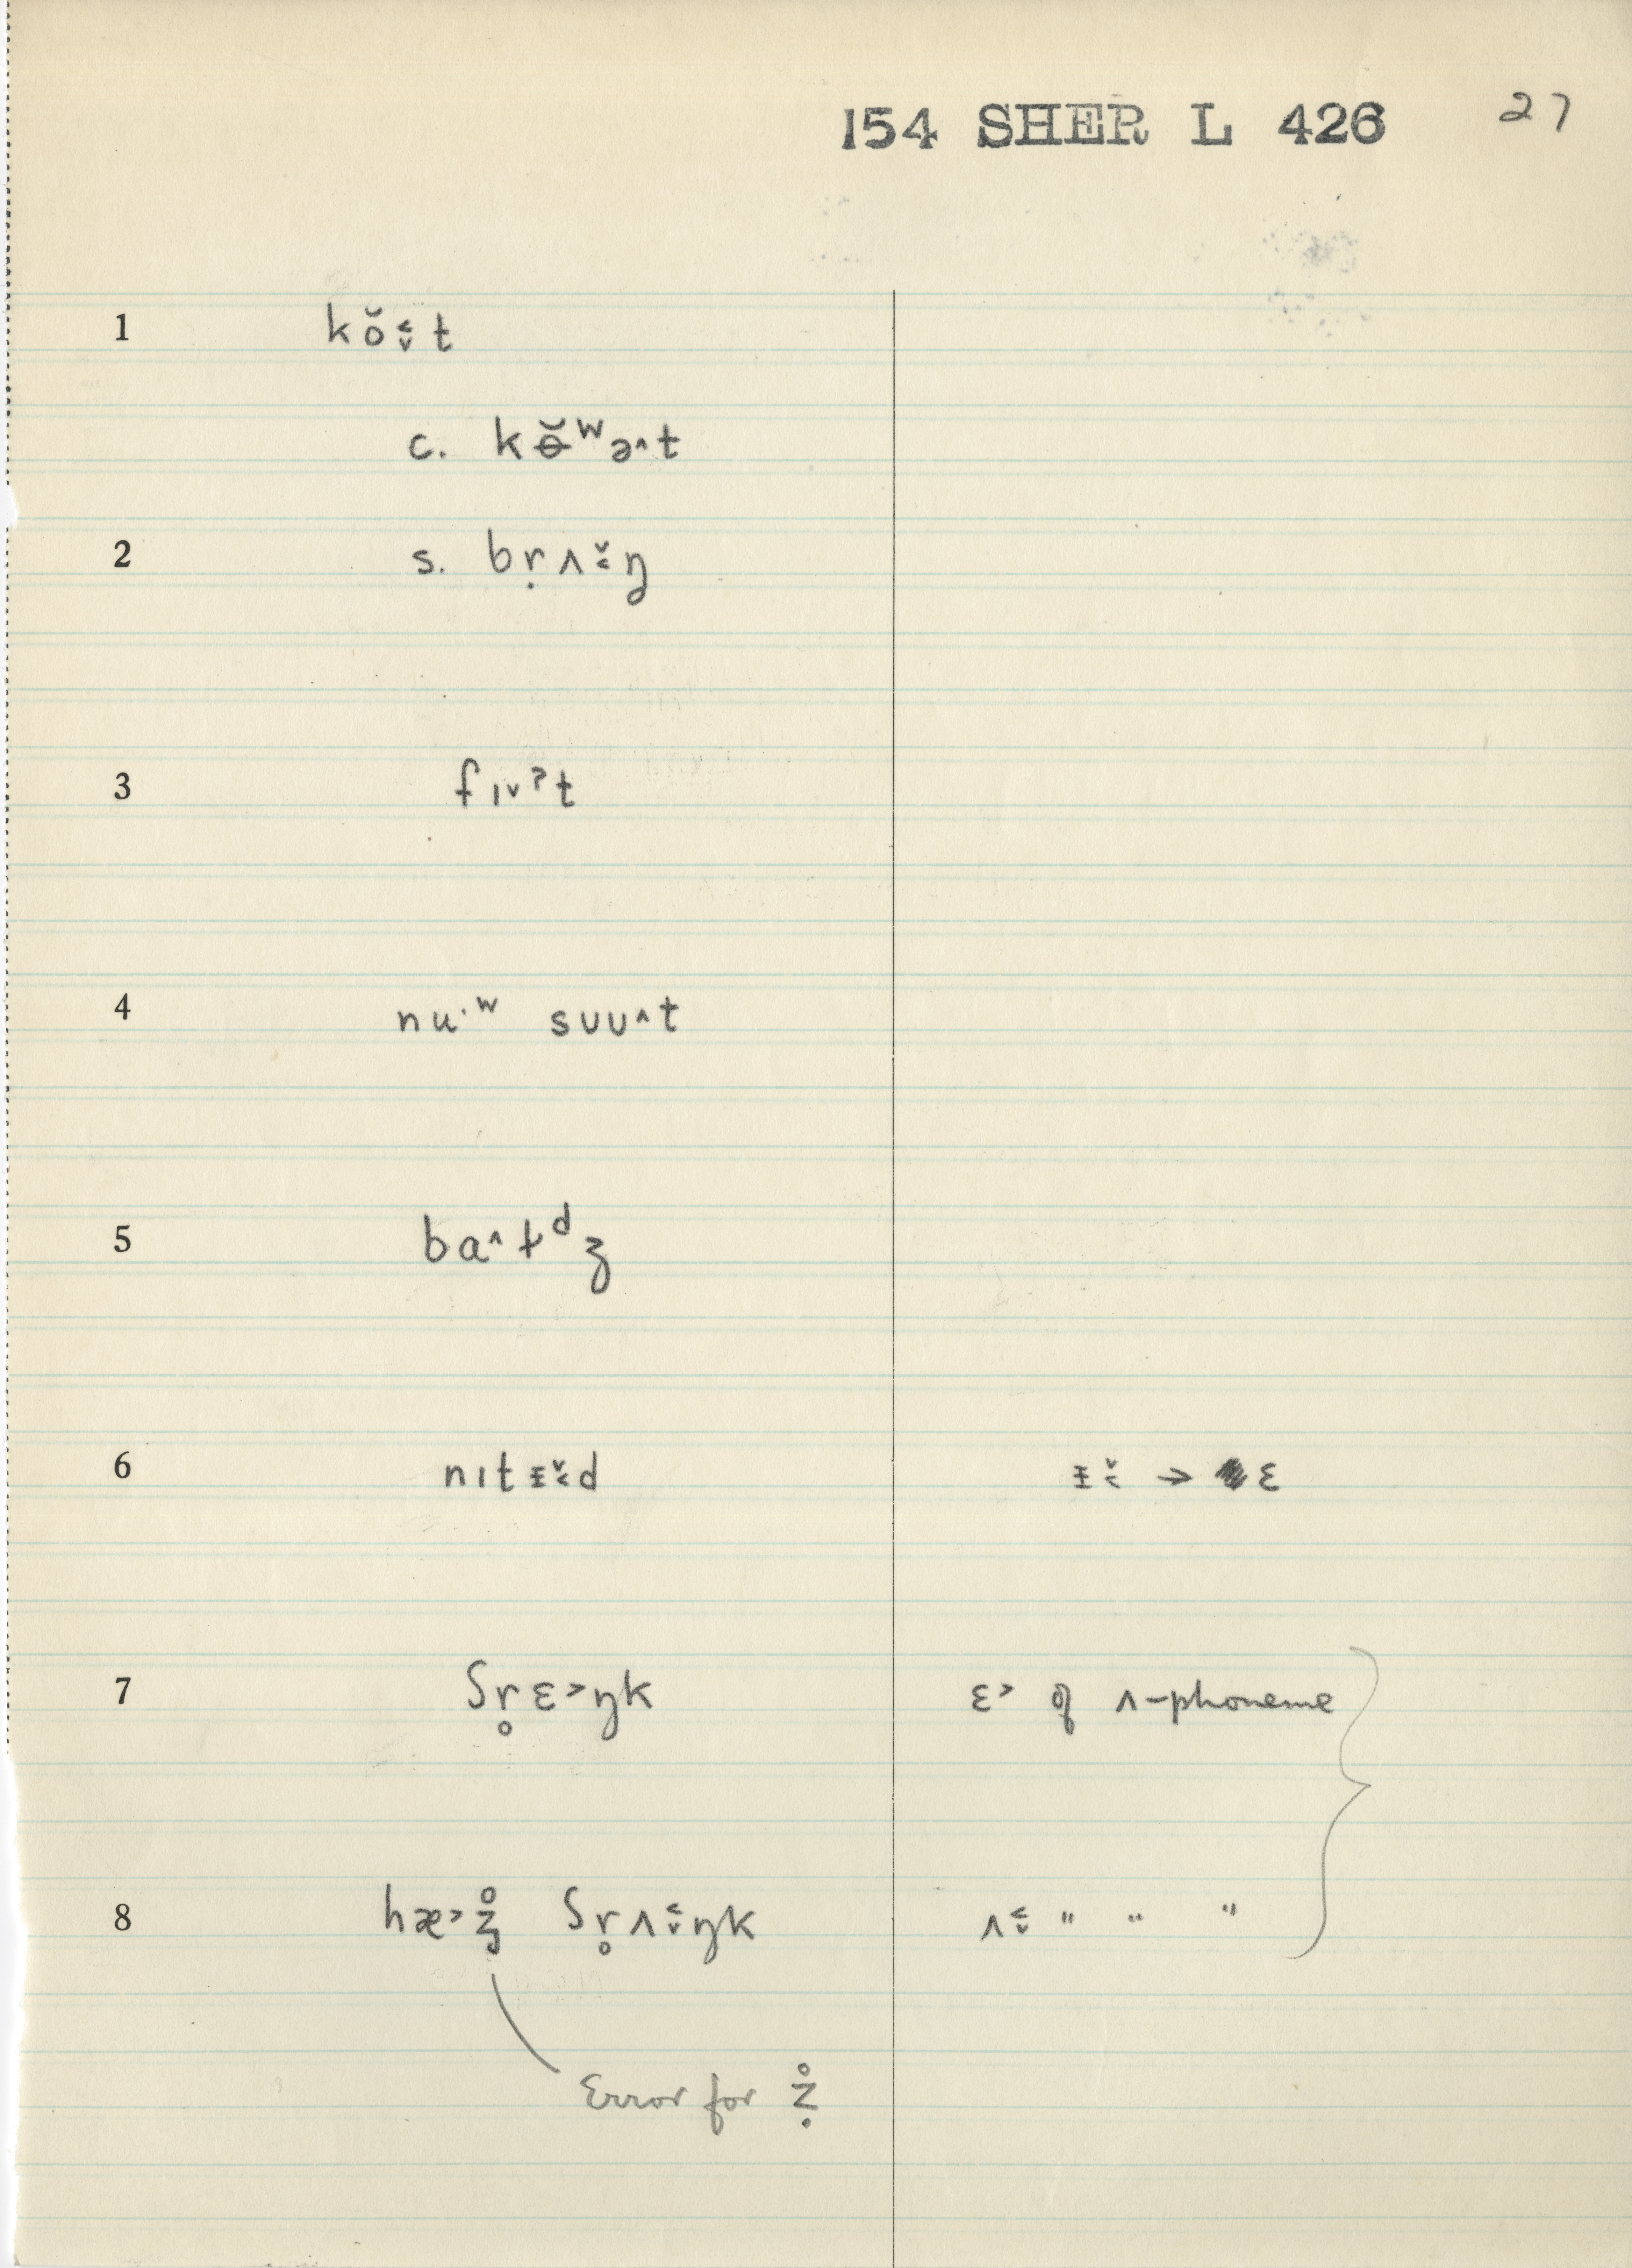 154 SHER L 426 27
1 kŏ˂˅t
c. kɵ̆ʷə˄t
2 s. bṛʌ˅˂ŋ
3 fɪ˅ˀt
4 nu·ʷ sᴜᴜ˄t
5 ba˄t̬ᵈʒ
6 nɪtᵻ˅˂d ᵻ˅˂ → ɛ
7 ʃr̥ɛ˃ŋk ɛ˃ of ʌ-phoneme
8 hæ˃ʒ̊ ʃr̥ʌ˂˅ŋk ʌ˂˅ " " "
Error for ẓ̊